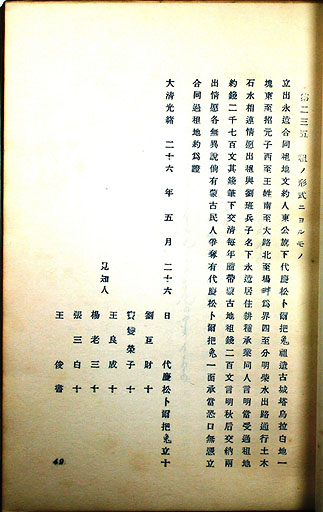 第二三五 租ノ形式ニヨルモノ
立出永遠合同租地文約人東公旗下代慶松卜爾把兔祖遺古城塔烏拉白地一
塊東至招元子西至王姓南至大路北至場畔爲界四至分明柴水出路通行土木
石水相連情愿出租與劉班兵子名下永遠居住耕種承業同人言明當受過租地
約錢二千七百文其錢筆下交清每年隨帶蒙古地租錢二百文言明秋后交納兩
出情愿各無異說倘有蒙古民人爭奪有代慶松卜爾把兔一面承當恐口無憑立
合同過租地約爲證
大清光緒 二十六 年 五 月 二十六 日 代慶松卜爾把兔立十
見知人
劉亙財十
賀變榮子十
王良成十
楊老三十
張三白十
王俊書
49